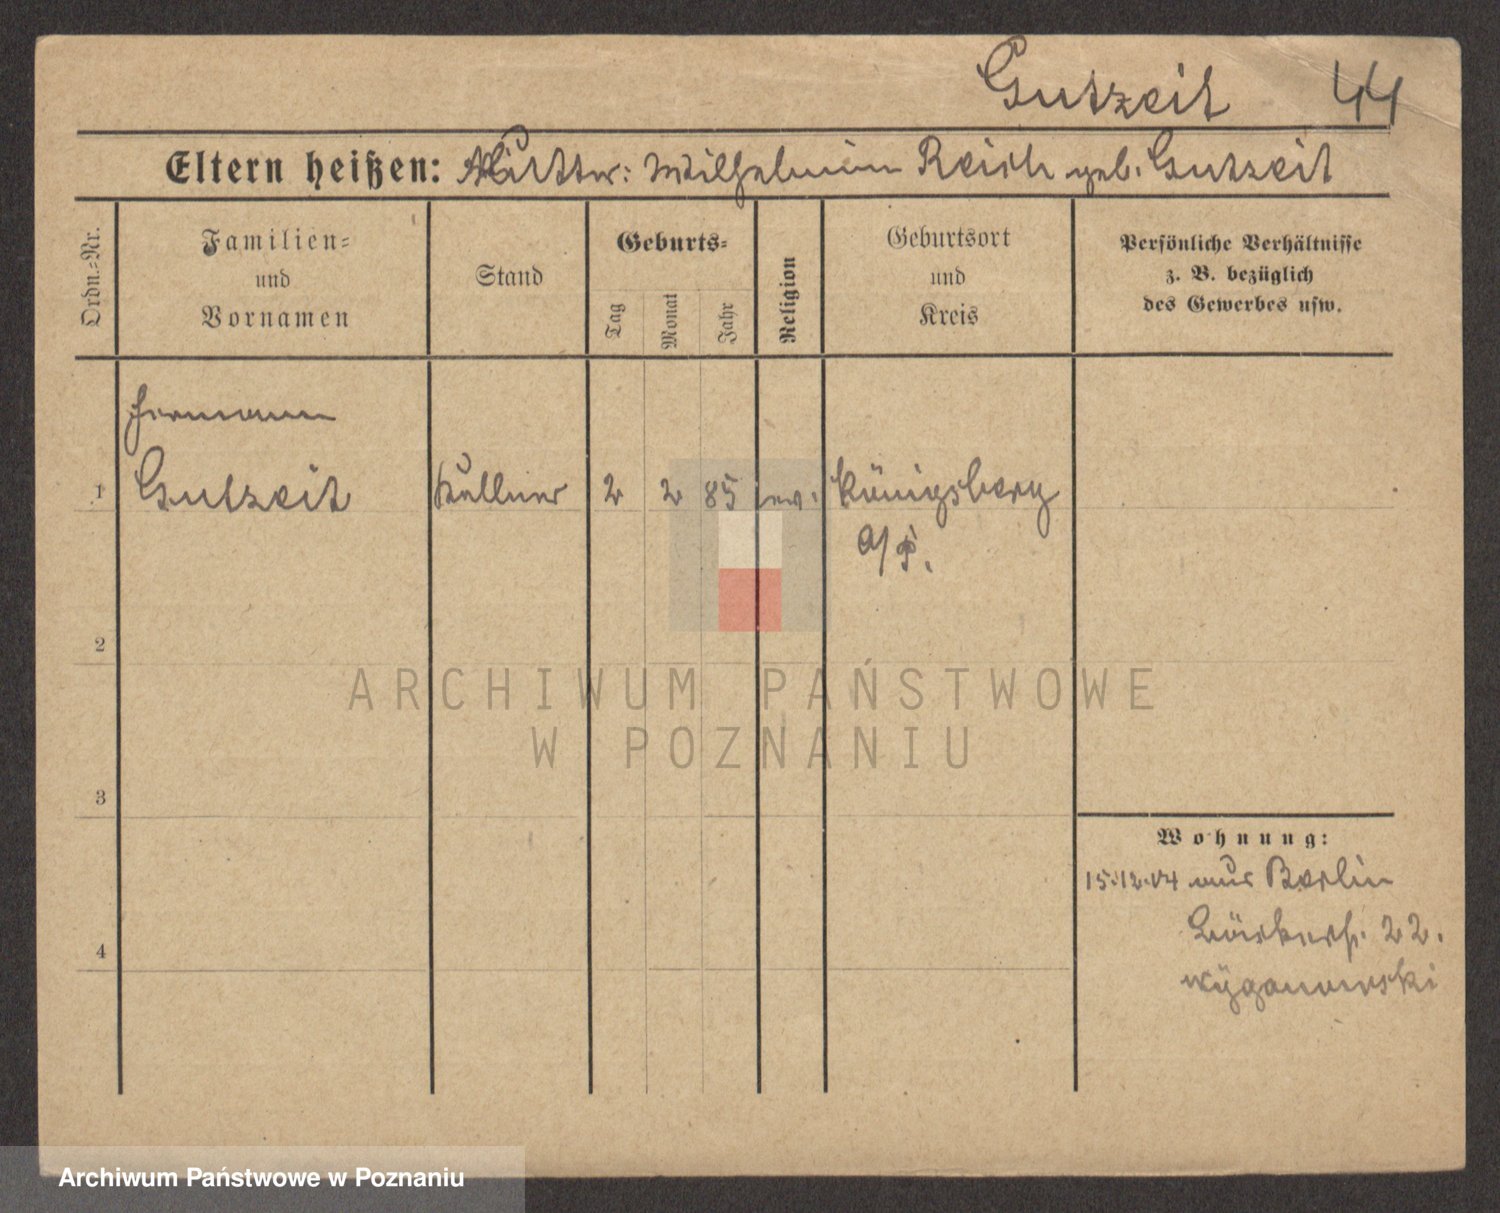 Gutzeit 44
Eltern heißen: Mutter: Wilhelmine Reich geb. Gutzeit
Ordn.-Nr.
Familien-
und
Vornamen
Stand
Geburts-
Tag
Monat
Jahr
Religion
Geburtsort
und
Kreis
Persönliche Verhältnisse
z. B. bezüglich
des Gewerbes usw.
Hermann
1 Gutzeit Kellner 2 2 85 ev. Königsberg
a/P.
2
3
4
Wohnung:
15.12.04 aus Berlin
22.
Wyganowski
ARCHIWUM PAŃSTWOWE
W POZNANIU
Archiwum Państwowe w Poznaniu